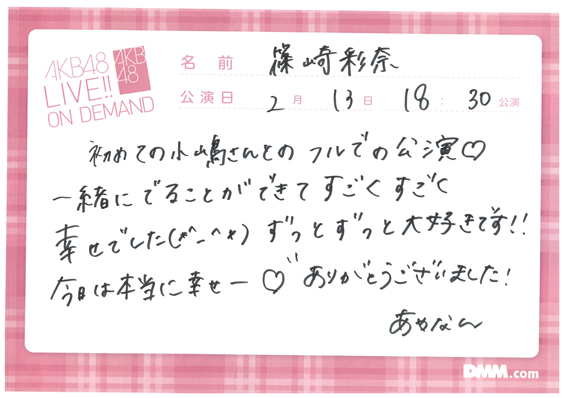 AKB48
LIVE!!
ON DEMAND
AKB
48
名前 篠崎彩奈
公演日 2月 13日 18:30公演
初めての小嶋さんとのフルでの公演♡
一緒にでることができてすごくすごく
幸せでした(*^-^*)ずっとずっと大好きです!!
今日は本当に幸せー♡ありがとうございました!
あやなん
DMM.com